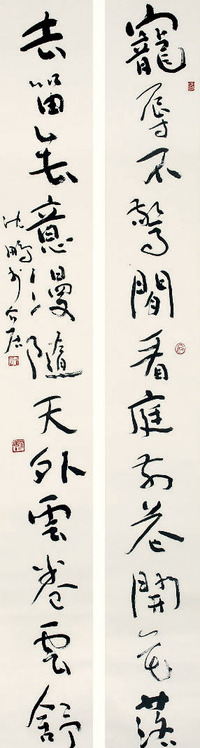 寵辱不驚閒看庭前花開花落
去留無意漫隨天外雲卷雲舒
沈鵬於介居